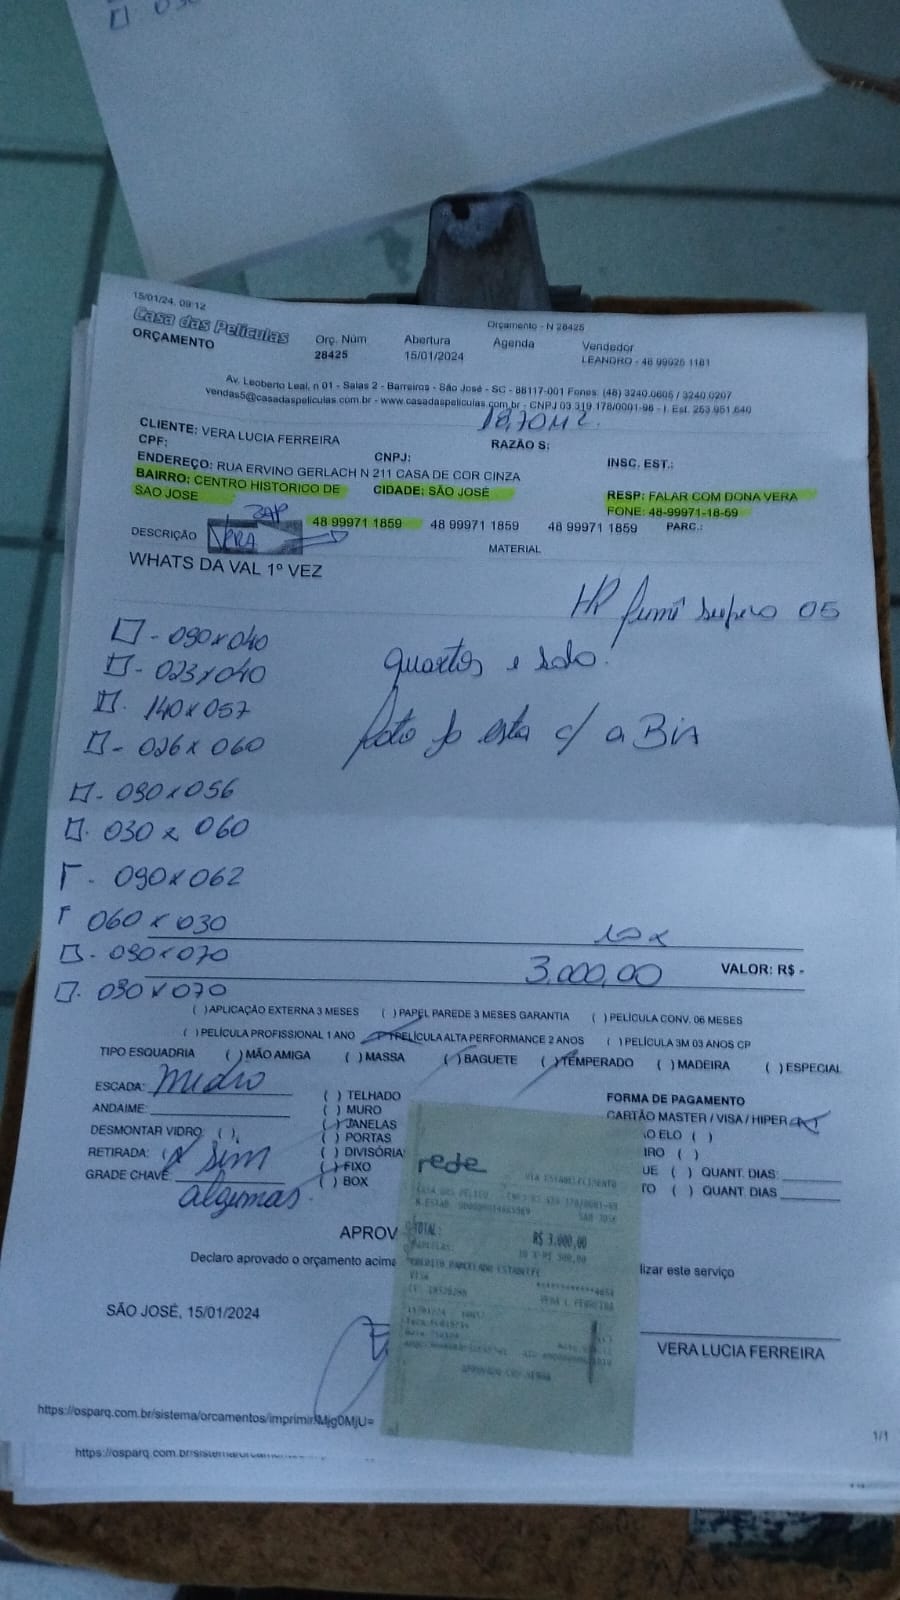 15/01/24, 09:12
Orçamento - N 28425
Casa das Películas
ORÇAMENTO
Orç. Núm Abertura Agenda Vendedor
28425 15/01/2024 LEANDRO - 48 99925 1181
Av. Leoberto Leal, n 01 - Salas 2 - Barreiros - São José - SC - 88117-001 Fones: (48) 3240.0605 / 3240.0207
vendas5@casadaspeliculas.com.br - www.casadaspeliculas.com.br - CNPJ 03.319.178/0001-96 - I. Est. 253.951.640
18,70M2.
CLIENTE: VERA LUCIA FERREIRA RAZÃO S:
CPF: CNPJ: INSC. EST.:
ENDEREÇO: RUA ERVINO GERLACH N 211 CASA DE COR CINZA
BAIRRO: CENTRO HISTORICO DE SAO JOSE CIDADE: SÃO JOSÉ RESP: FALAR COM DONA VERA
FONE: 48-99971-18-59
ZAP
48 99971 1859 48 99971 1859 48 99971 1859 PARC.:
DESCRIÇÃO VERA MATERIAL
WHATS DA VAL 1º VEZ
HP fumê 05
- 090x040
quartos e sala.
- 023x040
140x057
foto já esta c/ a BiA
- 026x060
- 090x056
030x060
- 090x062
060x030
10x
- 090x070
3.000,00 VALOR: R$ -
090x070
( )APLICAÇÃO EXTERNA 3 MESES ( )PAPEL PAREDE 3 MESES GARANTIA ( )PELÍCULA CONV. 06 MESES
( )PELÍCULA PROFISSIONAL 1 ANO PELÍCULA ALTA PERFORMANCE 2 ANOS ( )PELÍCULA 3M 03 ANOS CP
TIPO ESQUADRIA ( )MÃO AMIGA ( )MASSA ( )BAGUETE ( )TEMPERADO ( )MADEIRA ( )ESPECIAL
ESCADA: médio ( ) TELHADO FORMA DE PAGAMENTO
ANDAIME: ( ) MURO CARTÃO MASTER / VISA / HIPER
DESMONTAR VIDRO: ( ) ( ) JANELAS O ELO ( )
( ) PORTAS
RETIRADA: Sim ( ) DIVISÓRIA IRO ( )
GRADE CHAVE: algumas. ( ) FIXO UE ( ) QUANT. DIAS:
( ) BOX TO ( ) QUANT. DIAS
rede
VIA ESTABELECIMENTO
SAO JOSE
APROV
TOTAL: R$ 3.000,00
PARCELAS:
Declaro aprovado o orçamento acima lizar este serviço
CREDITO PARCELADO
VISA
VERA L FERREIRA
SÃO JOSÉ, 15/01/2024
VERA LUCIA FERREIRA
https://osparq.com.br/sistema/orcamentos/imprimir/Mjg0MjU=
1/1